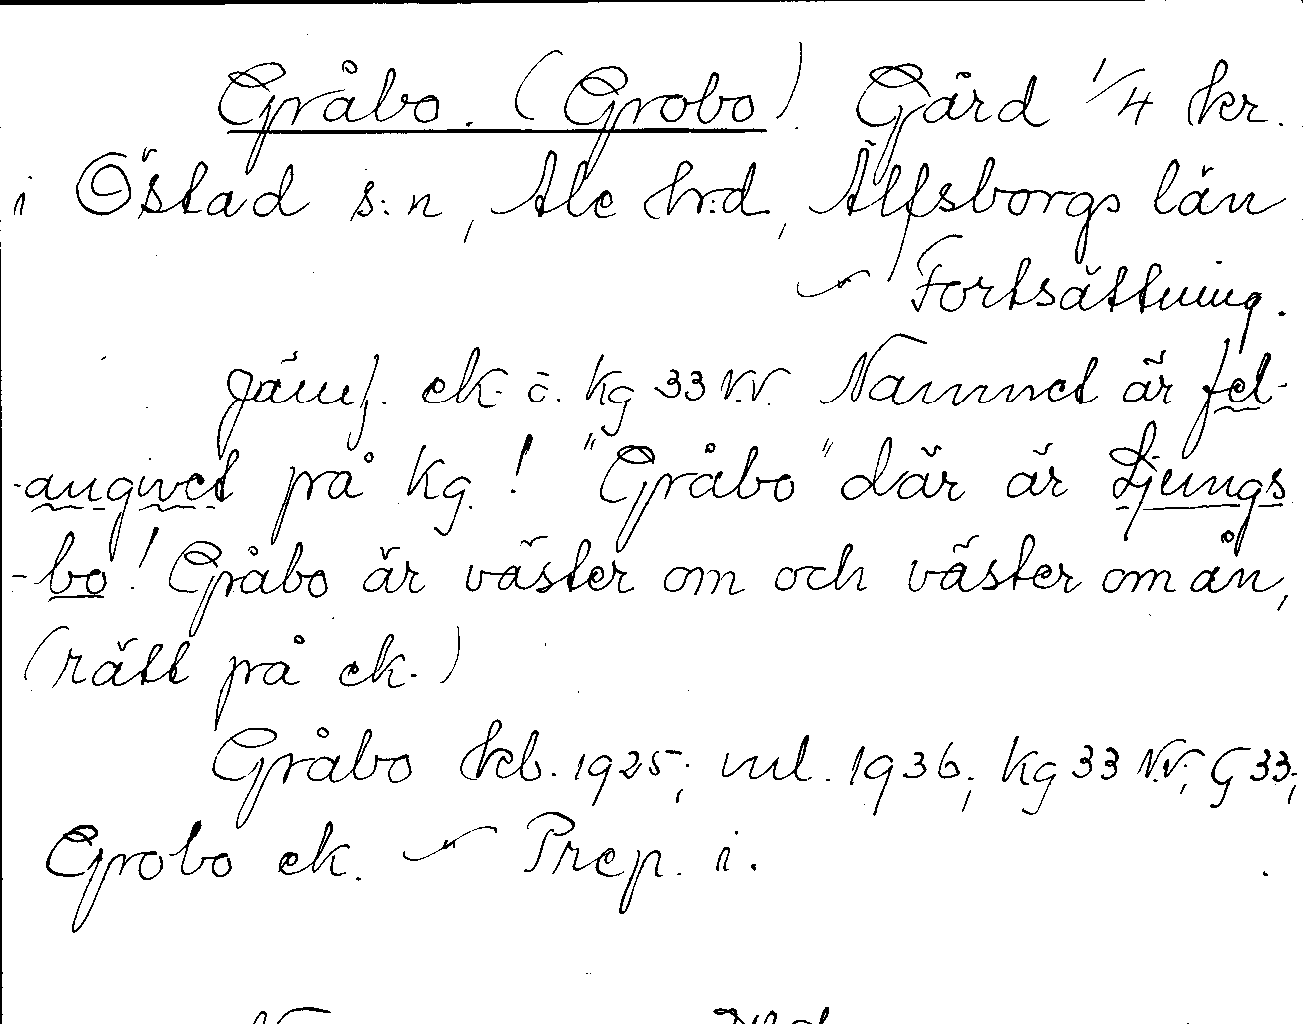 Gråbo. (Grobo). Gård 1/4 kr.
i Östad s:n, Ale hrd, Älfsborgs län
~ Fortsättning.
Jämf. ek. o. Kg 33 N.V. Namnet är fel-
-angivet på Kg! "Gråbo" där är Ljungs
-bo! Gråbo är väster om och väster om ån,
(rätt på ek.)
Gråbo kb. 1925; vul. 1936; Kg 33 N.V; G 33;
Grobo ek. ~ Prep. i.